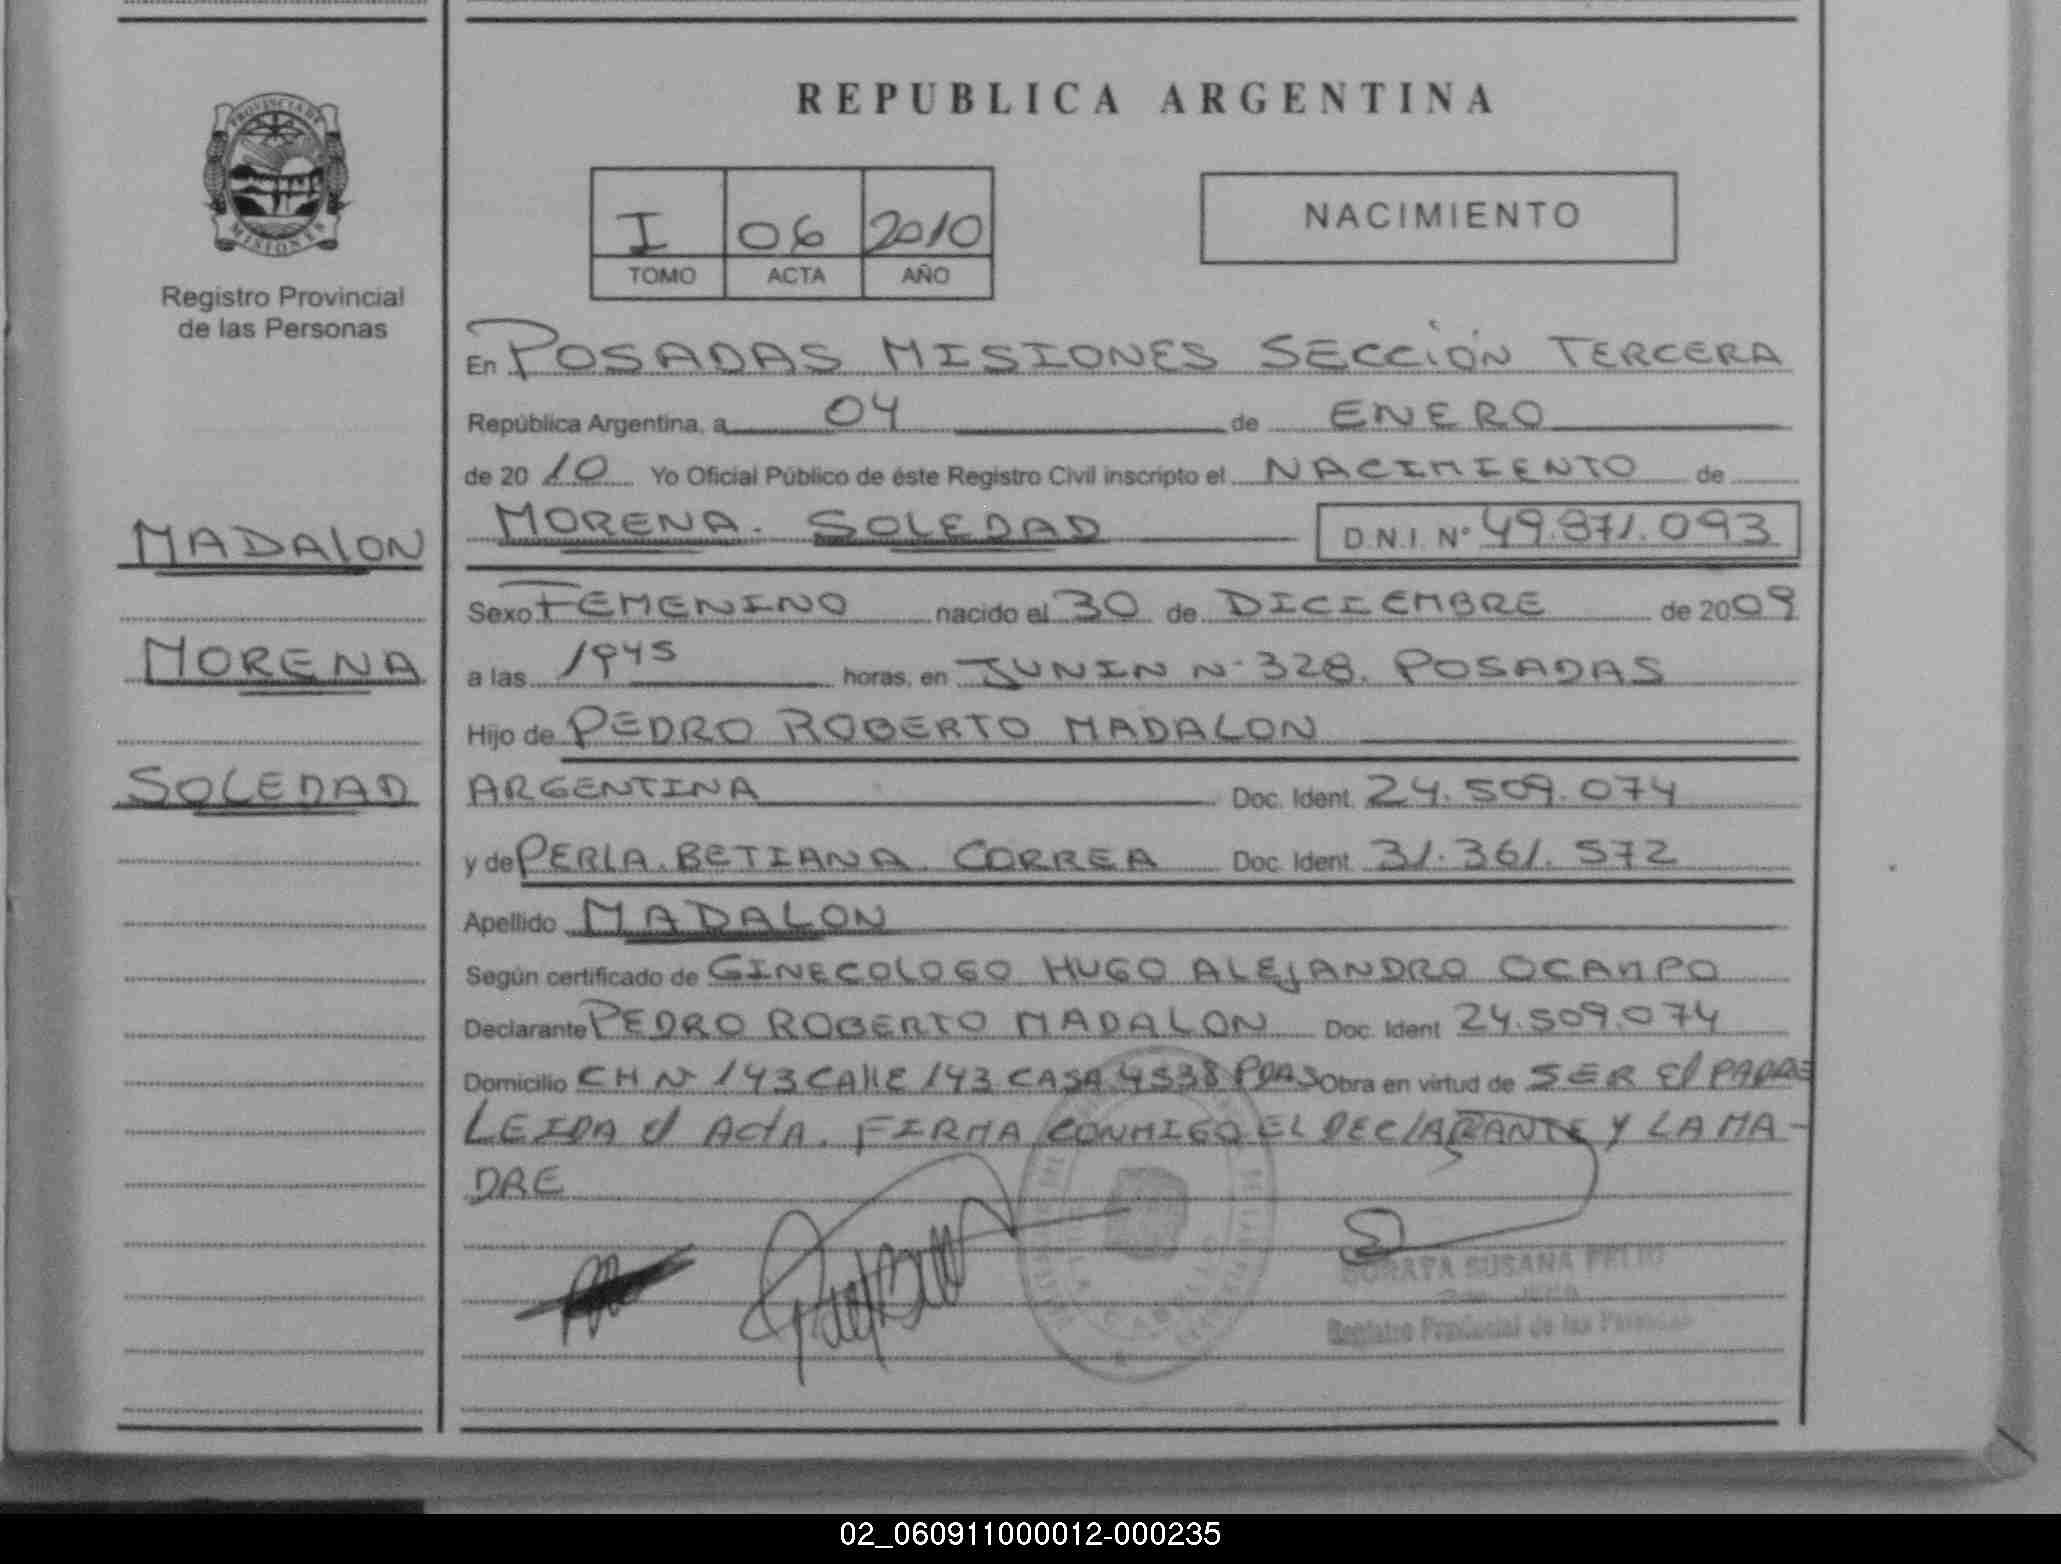 PROVINCIA DE
MISIONES
Registro Provincial
de las Personas
MADALON
MORENA
SOLEDAD
REPUBLICA ARGENTINA
I 06 2010
TOMO ACTA AÑO
NACIMIENTO
En POSADAS MISIONES SECCIÓN TERCERA
República Argentina, a 04 de ENERO
de 20 10 Yo Oficial Público de éste Registro Civil inscripto el NACIMIENTO de
MORENA. SOLEDAD D.N.I. Nº 49.871.093
Sexo FEMENINO nacido el 30 de DICIEMBRE de 2009
a las 1945 horas, en JUNIN N· 328. POSADAS
Hijo de PEDRO ROBERTO MADALON
ARGENTINA Doc. Ident. 24.509.074
y de PERLA. BETIANA. CORREA Doc. Ident. 31.361.572
Apellido MADALON
Según certificado de GINECOLOGO HUGO ALEJANDRO OCAMPO
Declarante PEDRO ROBERTO MADALON Doc. Ident 24.509.074
Domicilio CH N 143 CALLE 143 CASA 4538 PDAS Obra en virtud de SER El PADRE
LEIDA el ActA. FIRMA CONMIGO EL DEClARANTE Y LA MA-
DRE
SUSANA
Registro Provincial de las Personas
02_060911000012-000235